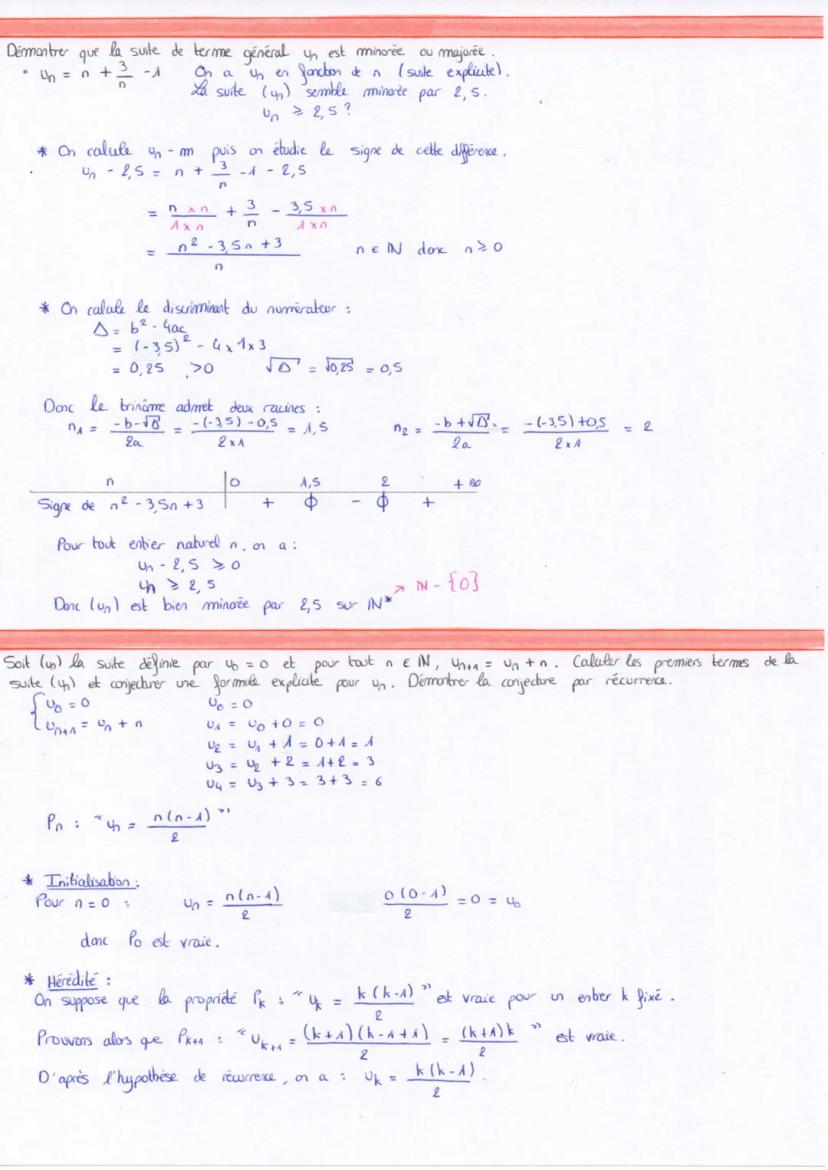 Démontrer que la suite de terme général un est minorée ou majorée.
• un = n + 3/n - 1 On a un en fonction de n (suite explicite).
La suite (un) semble minorée par 2,5.
un ≥ 2,5 ?
* On calcule un - m puis on étudie le signe de cette différence.
un - 2,5 = n + 3/n - 1 - 2,5
= (n × n)/(1 × n) + 3/n - (3,5 × n)/(1 × n)
= (n² - 3,5n + 3)/n n ∈ ℕ donc n ≥ 0
* On calcule le discriminant du numérateur :
Δ = b² - 4ac
= (-3,5)² - 4 × 1 × 3
= 0,25 > 0 √Δ = √0,25 = 0,5
Donc le trinôme admet deux racines :
n1 = (-b-√Δ)/2a = (-(-3,5) - 0,5)/(2×1) = 1,5 n2 = (-b+√Δ)/2a = (-(-3,5)+0,5)/(2×1) = 2
n 0 1,5 2 +∞
Signe de n² - 3,5n + 3 + 0 - 0 +
Pour tout entier naturel n, on a :
un - 2,5 ≥ 0
un ≥ 2,5
Donc (un) est bien minorée par 2,5 sur ℕ* → ℕ - {0}
Soit (un) la suite définie par u0 = 0 et pour tout n ∈ ℕ, un+1 = un + n. Calculer les premiers termes de la
suite (un) et conjecturer une formule explicite pour un. Démontrer la conjecture par récurrence.
{ u0 = 0 u0 = 0
un+1 = un + n u1 = u0 + 0 = 0
u2 = u1 + 1 = 0+1 = 1
u3 = u2 + 2 = 1+2 = 3
u4 = u3 + 3 = 3+3 = 6
Pn : "un = n(n-1)/2"
* Initialisation :
Pour n = 0 : un = n(n-1)/2 0(0-1)/2 = 0 = u0
donc P0 est vraie.
* Hérédité :
On suppose que la propriété Pk : "uk = k(k-1)/2" est vraie pour un entier k fixé.
Prouvons alors que Pk+1 : "uk+1 = (k+1)(k-1+1)/2 = (k+1)k/2" est vraie.
D'après l'hypothèse de récurrence, on a : uk = k(k-1)/2.